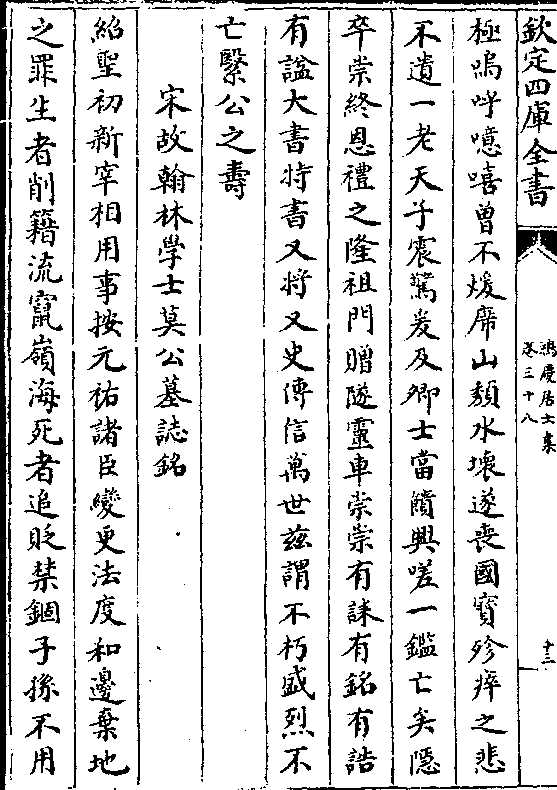 欽定四庫全書
鴻慶居士集
卷三十八
十三
極嗚呼噫嘻曾不煖席山頽水壞遂喪國寳殄瘁之悲
不遺一老天子震驚爰及卿士當饋興嗟一鑑亡矣隱
卒崇終恩禮之隆祖門贈隧靈車崇崇有誄有銘有誥
有諡大書特書又將又史傳信萬世兹謂不朽盛烈不
亡繄公之壽
宋故翰林學士莫公墓誌銘
紹聖初新宰相用事按元祐諸臣變更法度和邊棄地
之罪生者削籍流竄嶺海死者追貶禁錮子孫不用